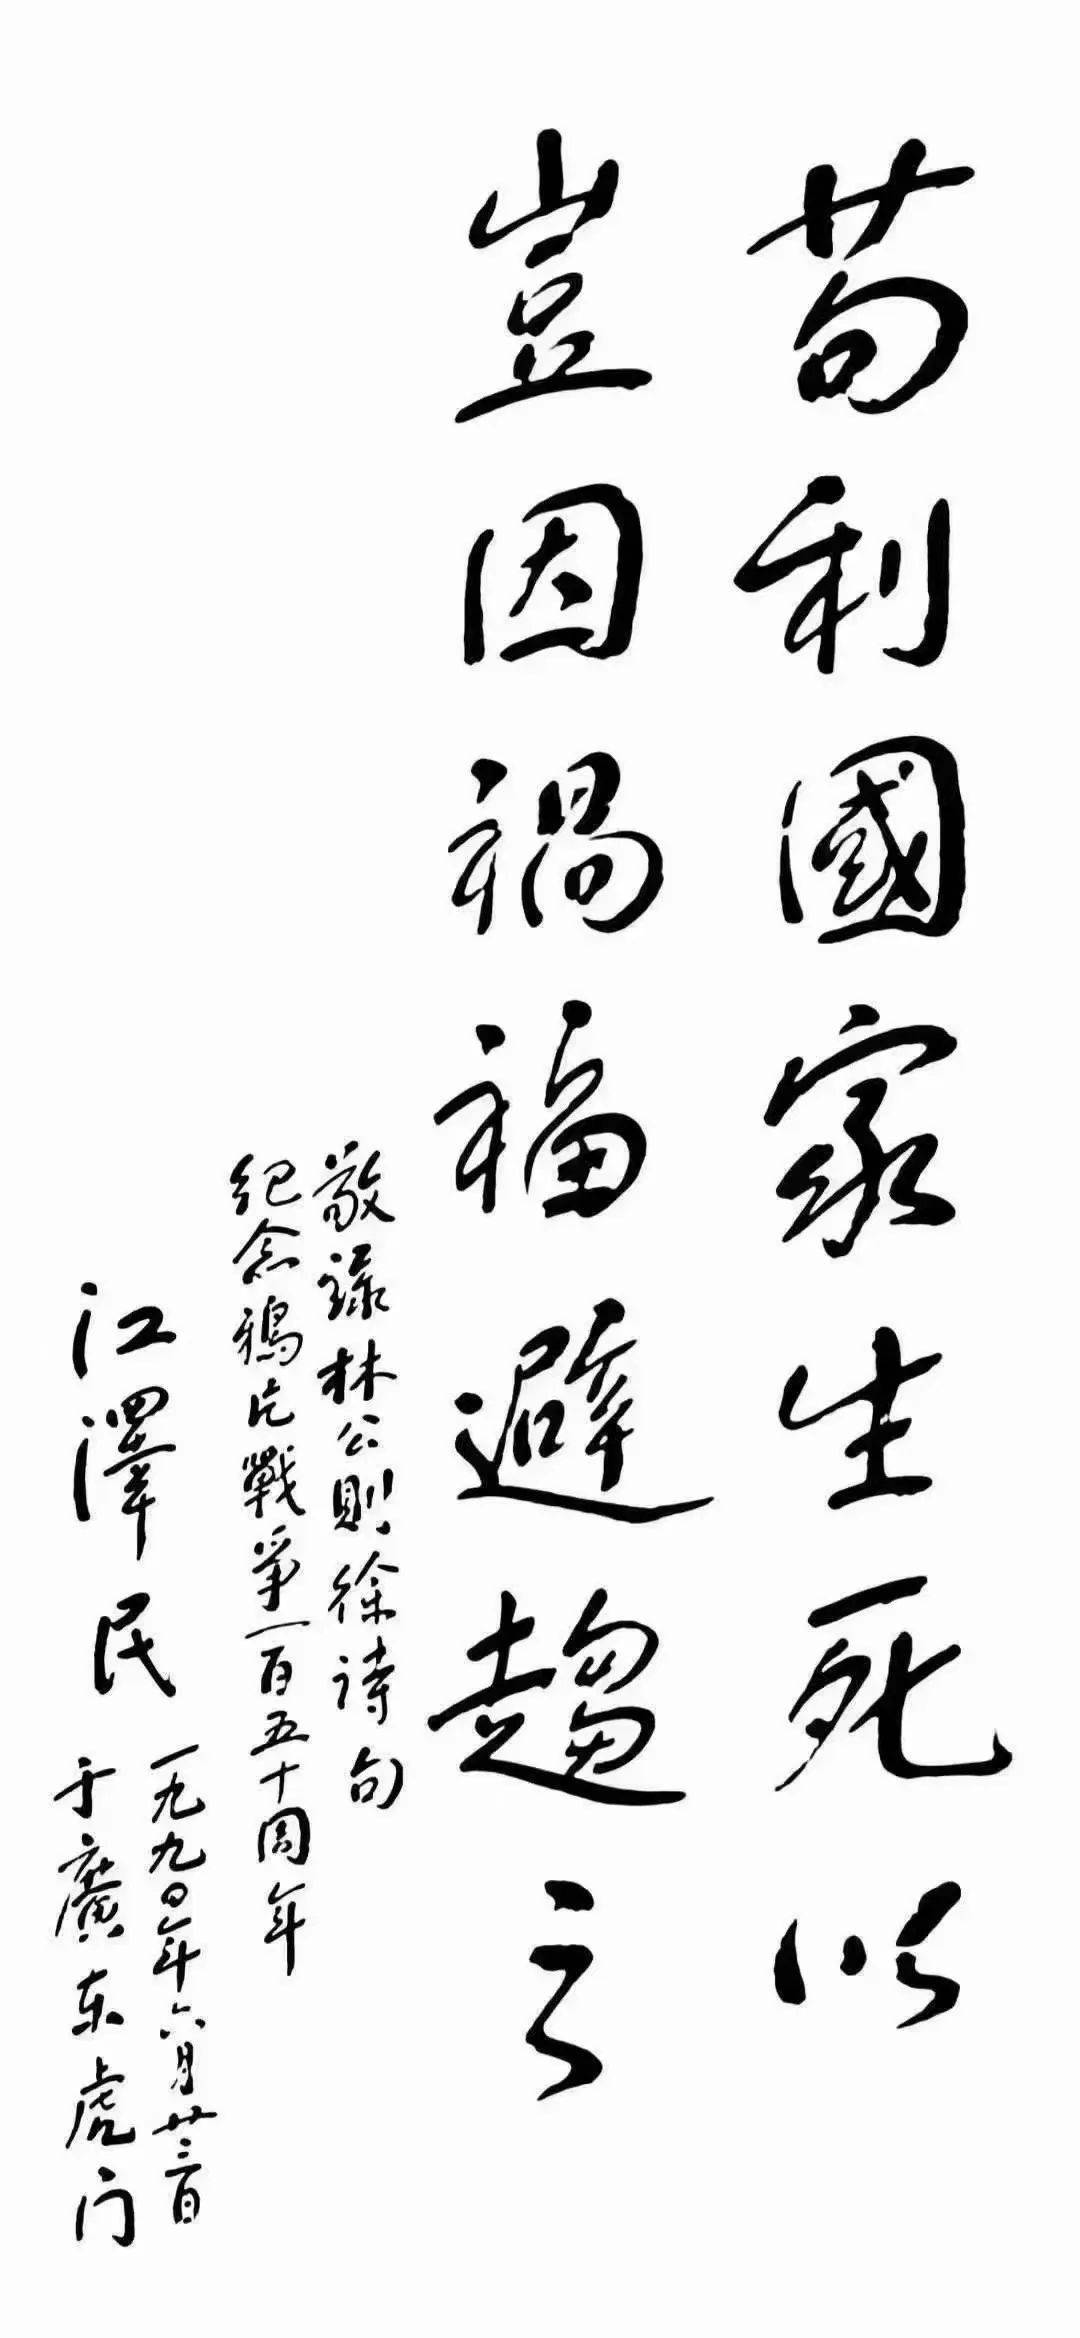 苟利國家生死以
豈因禍福避趨之
敬录林公則徐诗句
纪念鴉片戰爭一百五十周年
江澤民
一九九〇年六月廿三日
于廣东虎门